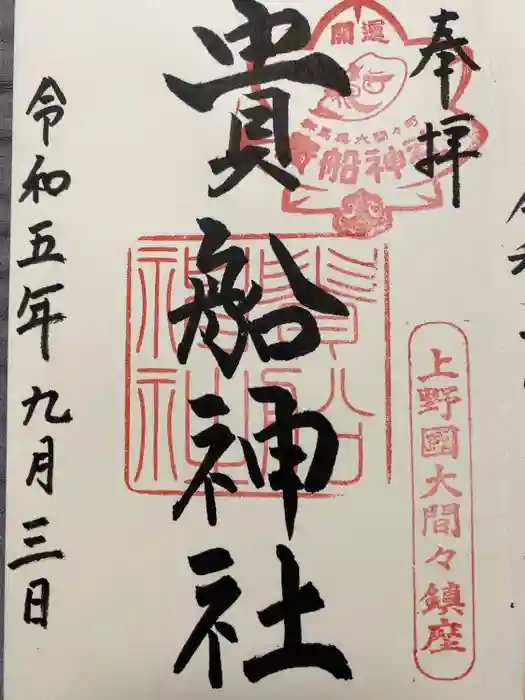 奉拝
開運
群馬県大間々町
貴船神社
上野國大間々鎮座
貴船神社
貴船神社
令和五年九月三日